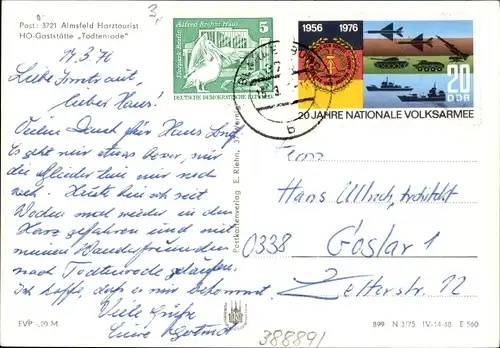 Post: 3721 Almsfeld Harztourist
HO-Gaststätte „Todtenrode"
14.3.76
Liebe Irmtraut,
lieber Hans!
Vielen Dank für Hans
Es geht mir etwas besser, nur
die Glieder tun mir noch
weh. Heute bin ich seit
Wochen mal wieder in den
Harz gefahren und mit
meinen Wanderfreunden
nach Todtenrode gelaufen.
Ich hoffe, daß es mir bekommt.
Viele Grüße
Eure
EVP -,20 M
Postkartenverlag E. Riehn, 37 Wernigerode
Alfred Brehm Haus
Tierpark Berlin
5
DEUTSCHE DEMOKRATISCHE REPUBLIK
1956 1976
20
DDR
20 JAHRE NATIONALE VOLKSARMEE
b
Herrn
Hans Ullrich, Architekt
0338 Goslar 1
Zetterstr. 12
388891
899 N 3/75 IV-14-48 E 560